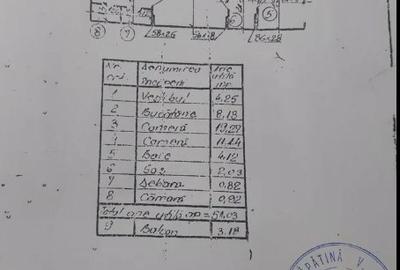 8 7 5
58x26 56x18 84x28
Nr. crt. Denumirea încăperii Arie utilă mp
1 Vestibul 6.25
2 Bucătărie 8.13
3 Cameră
4 Cameră 11.44
5 Baie 4.12
6 Sas 2.03
7 Debara 0.82
8 Cămară 0.92
Total arie utilă mp = 51.03
9 Balcon 3.18